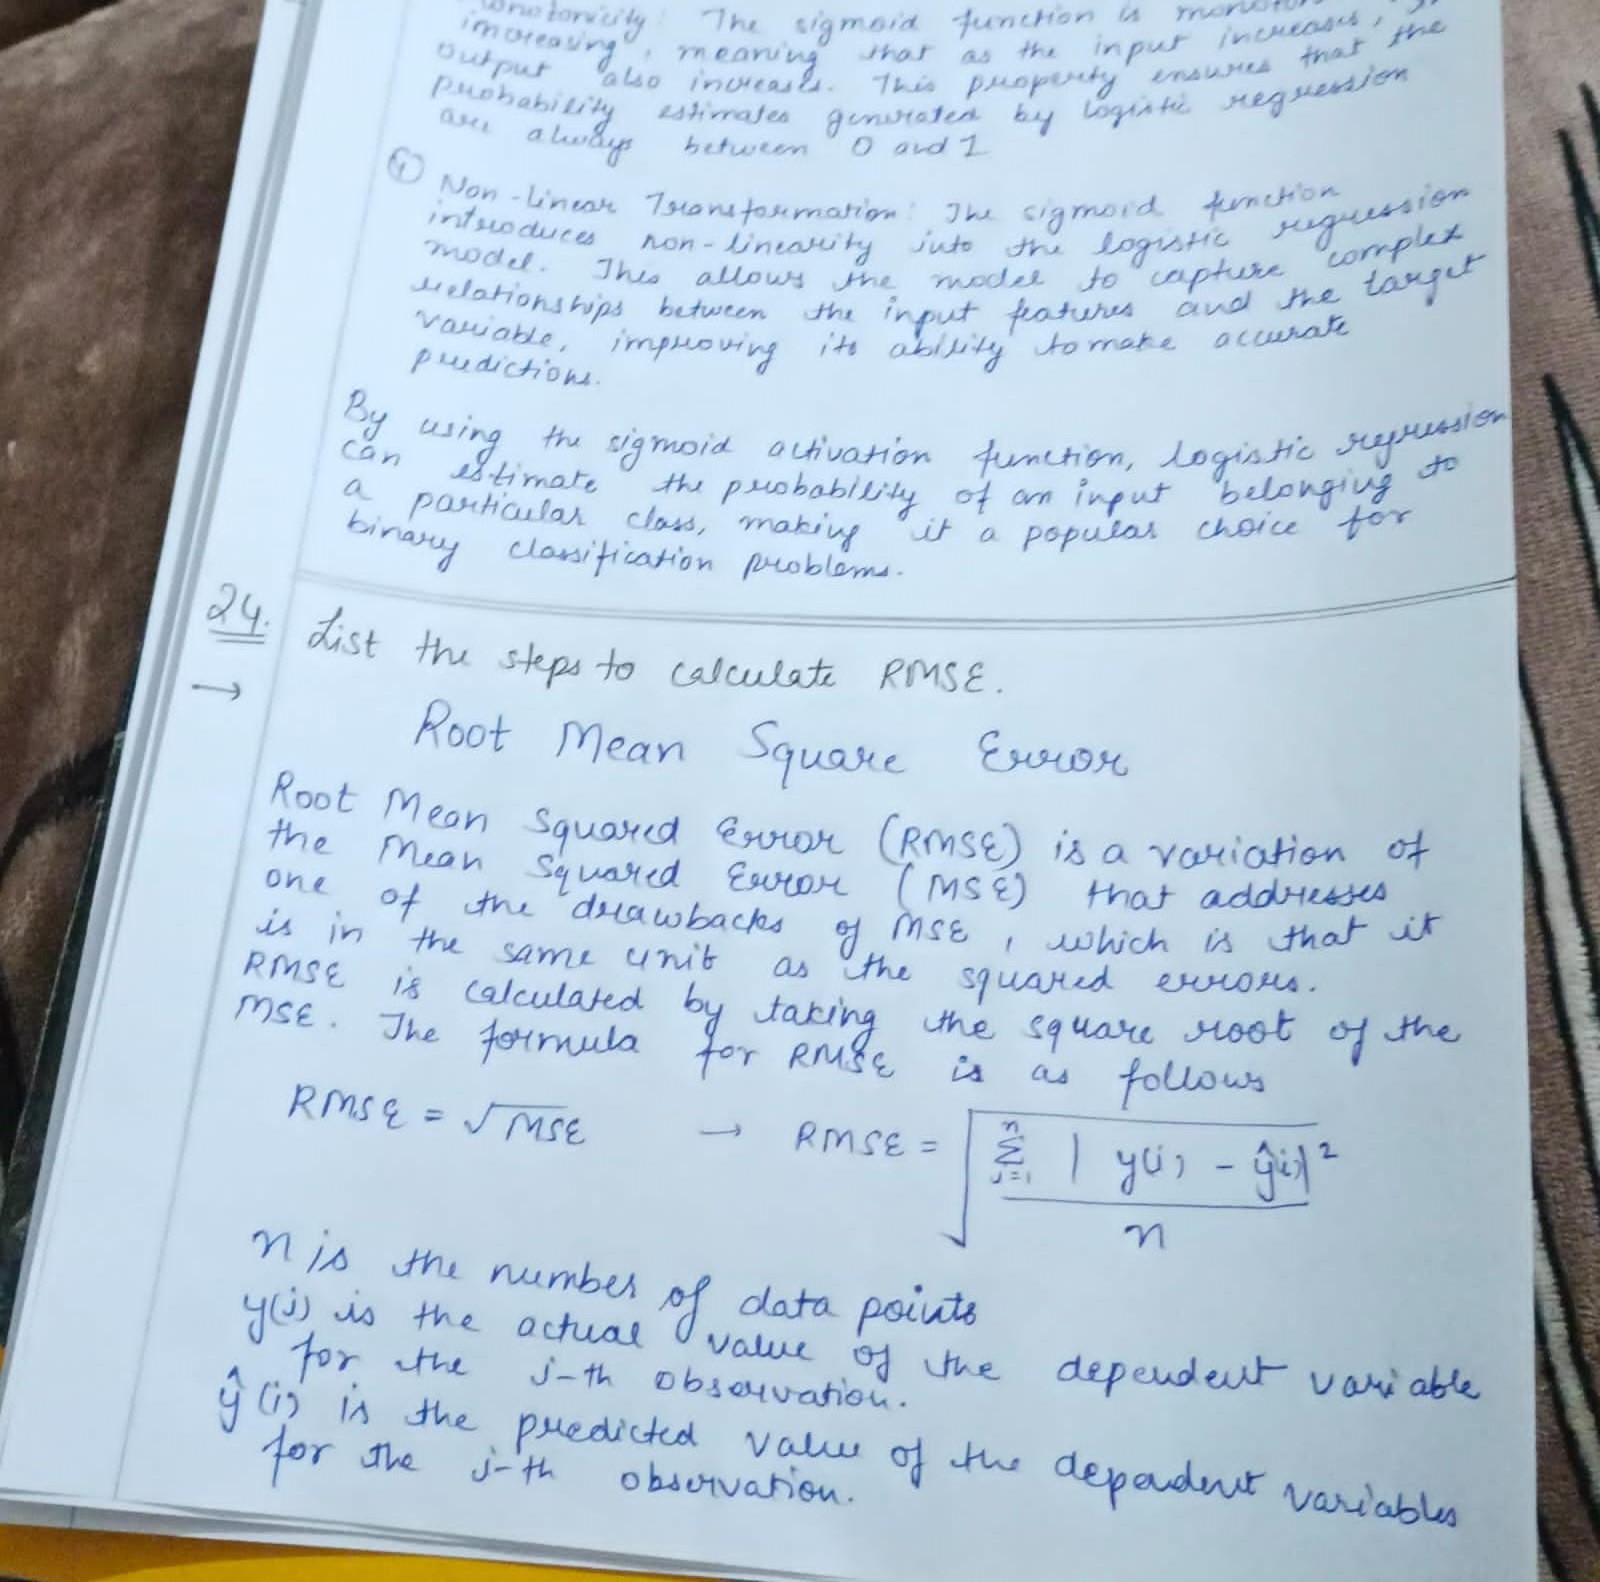 The sigmoid function is
increasing, meaning that as the input increases,
output also increases. This property ensures that the
probability estimates generated by logistic regression
are always between 0 and 1
④ Non-linear Transformation: The sigmoid function
introduces non-linearity into the logistic regression
model. This allows the model to capture complex
relationships between the input features and the target
variable, improving its ability to make accurate
predictions.
By using the sigmoid activation function, logistic regression
can estimate the probability of an input belonging to
a particular class, making it a popular choice for
binary classification problems.
24. List the steps to calculate RMSE.
→ Root Mean Square Error
Root Mean Squared Error (RMSE) is a variation of
the Mean Squared Error (MSE) that addresses
one of the drawbacks of MSE, which is that it
is in the same unit as the squared errors.
RMSE is calculated by taking the square root of the
MSE. The formula for RMSE is as follows
RMSE = √MSE → RMSE = √(Σⁿj=1 | y(i) - ŷ(i)|² / n)
n is the number of data points
y(i) is the actual value of the dependent variable
for the j-th observation.
ŷ(i) is the predicted value of the dependent variables
for the j-th observation.